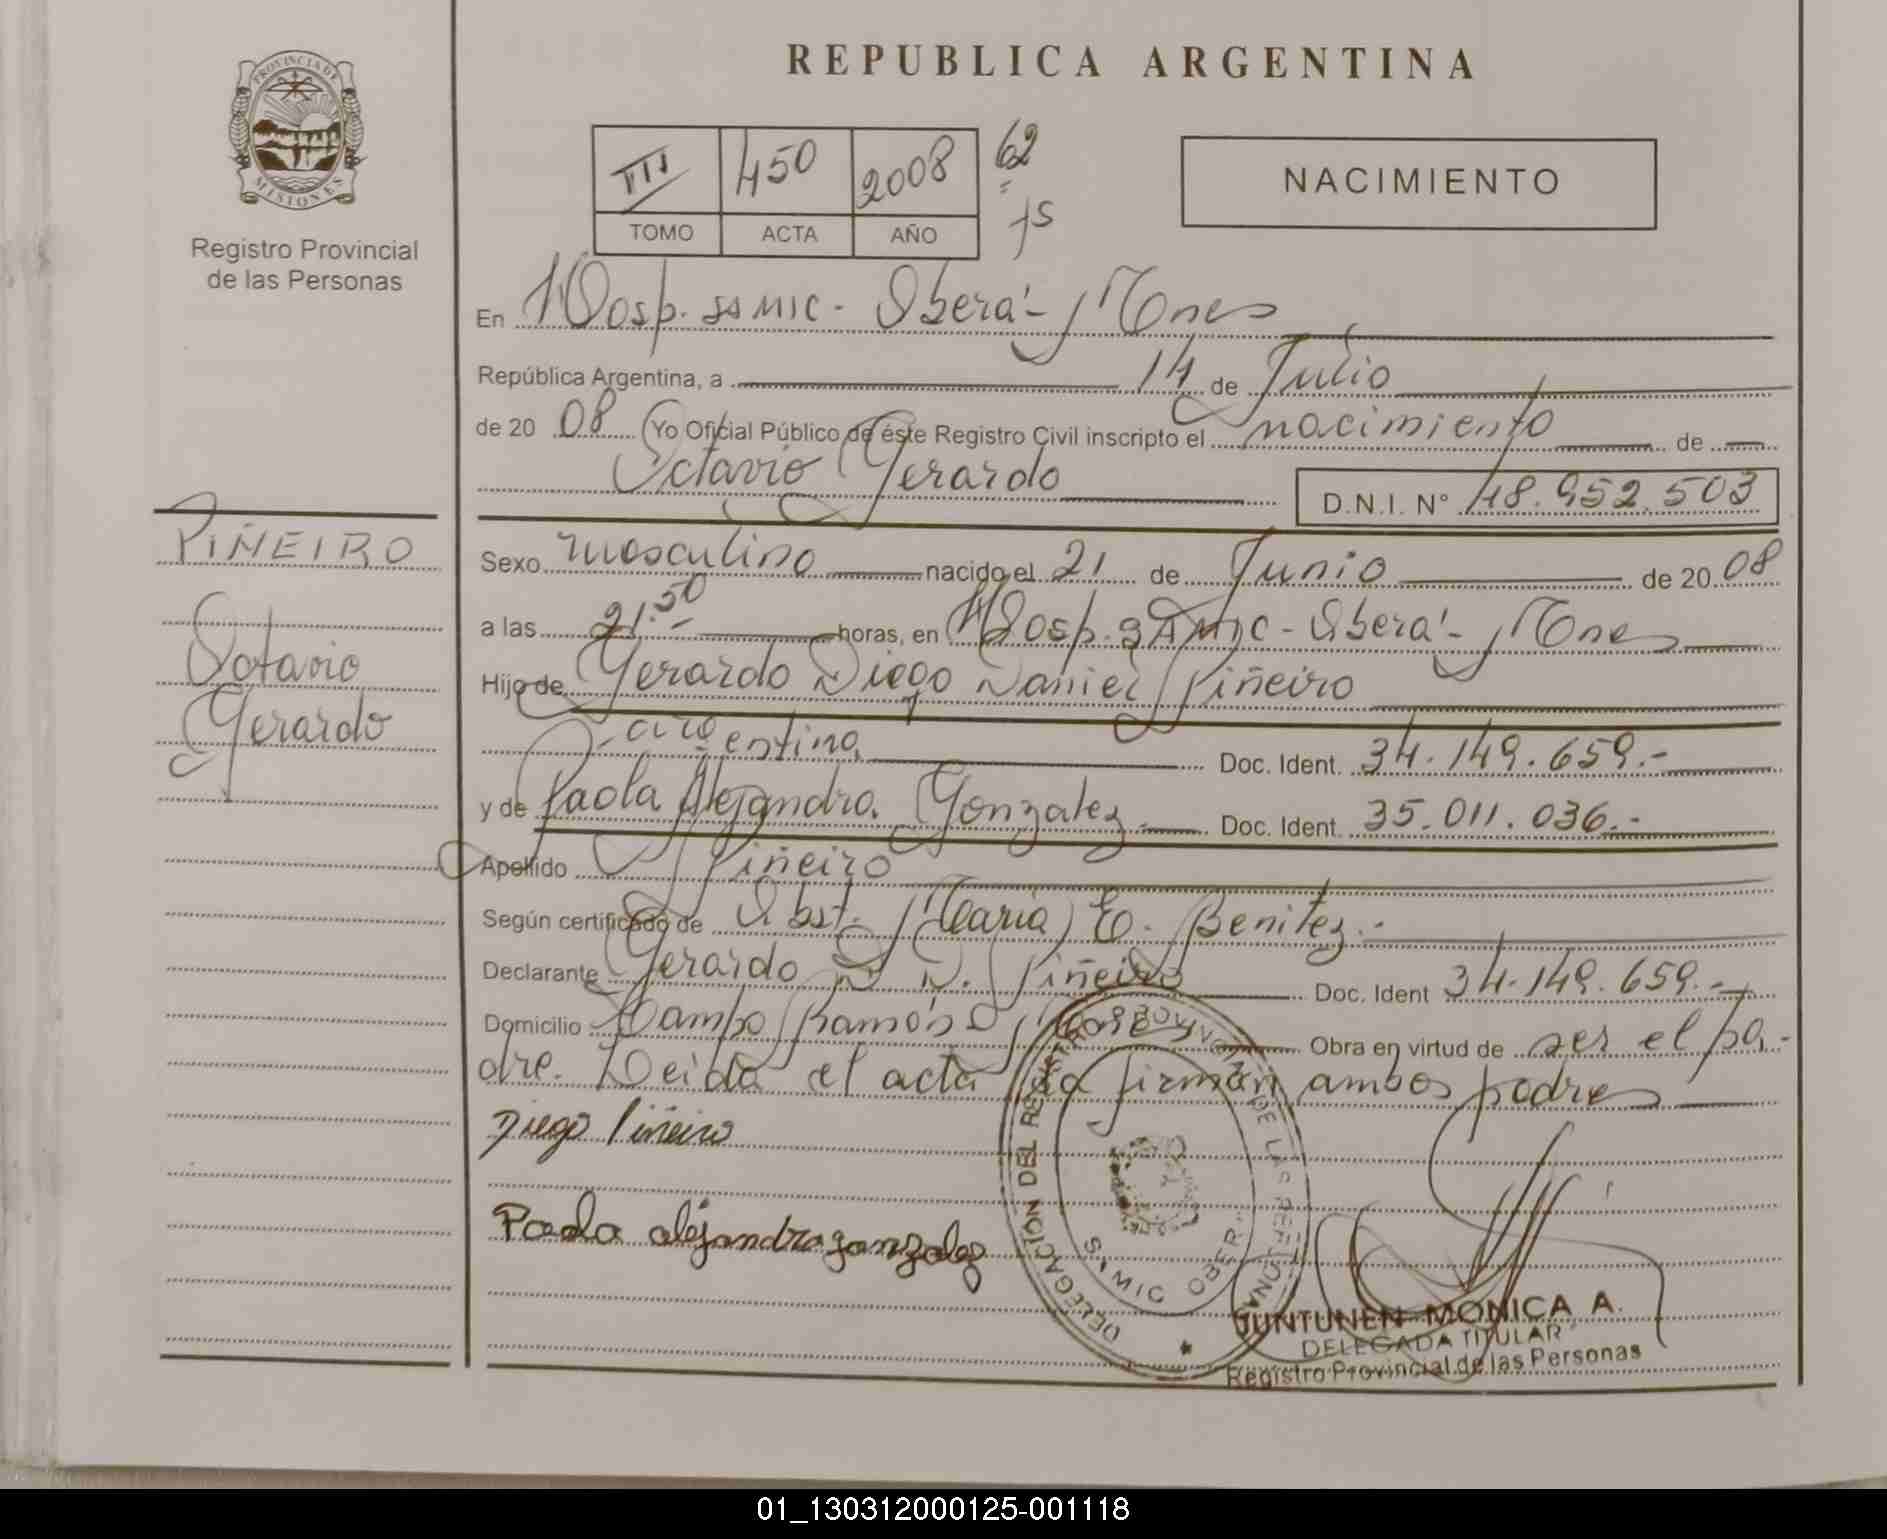 REPUBLICA ARGENTINA
PROVINCIA DE
MISIONES
Registro Provincial
de las Personas
III 450 2008 62
TOMO ACTA AÑO
NACIMIENTO
En Hosp. SAMIC - Oberá - Mnes
República Argentina, a 14 de Julio
de 20 08 Yo Oficial Público de éste Registro Civil inscripto el nacimiento de
Octavio Gerardo D.N.I. N° 48.952.503
PIÑEIRO
Octavio
Gerardo
Sexo masculino nacido el 21 de Junio de 20 08
a las 21.50 horas, en Hosp. SAMIC - Oberá - Mnes
Hijo de Gerardo Diego Daniel Piñeiro
argentina Doc. Ident. 34.149.659.-
y de Paola Alejandra Gonzalez.- Doc. Ident. 35.011.036.-
Apellido Piñeiro
Según certificado de Obst. Maria E. Benitez.-
Declarante Gerardo D. D. Piñeiro Doc. Ident 34.149.659.-
Domicilio Campo Ramón Obra en virtud de ser el pa-
dre. Leida el acta la firman ambos padres
Diego Piñeiro
Paola alejandra gonzalez
DELEGACION DEL REGISTRO PROVINCIAL DE LAS PERSONAS
SAMIC OBERA
JUNTUNEN MONICA A.
DELEGADA TITULAR
Registro Provincial de las Personas
01_130312000125-001118